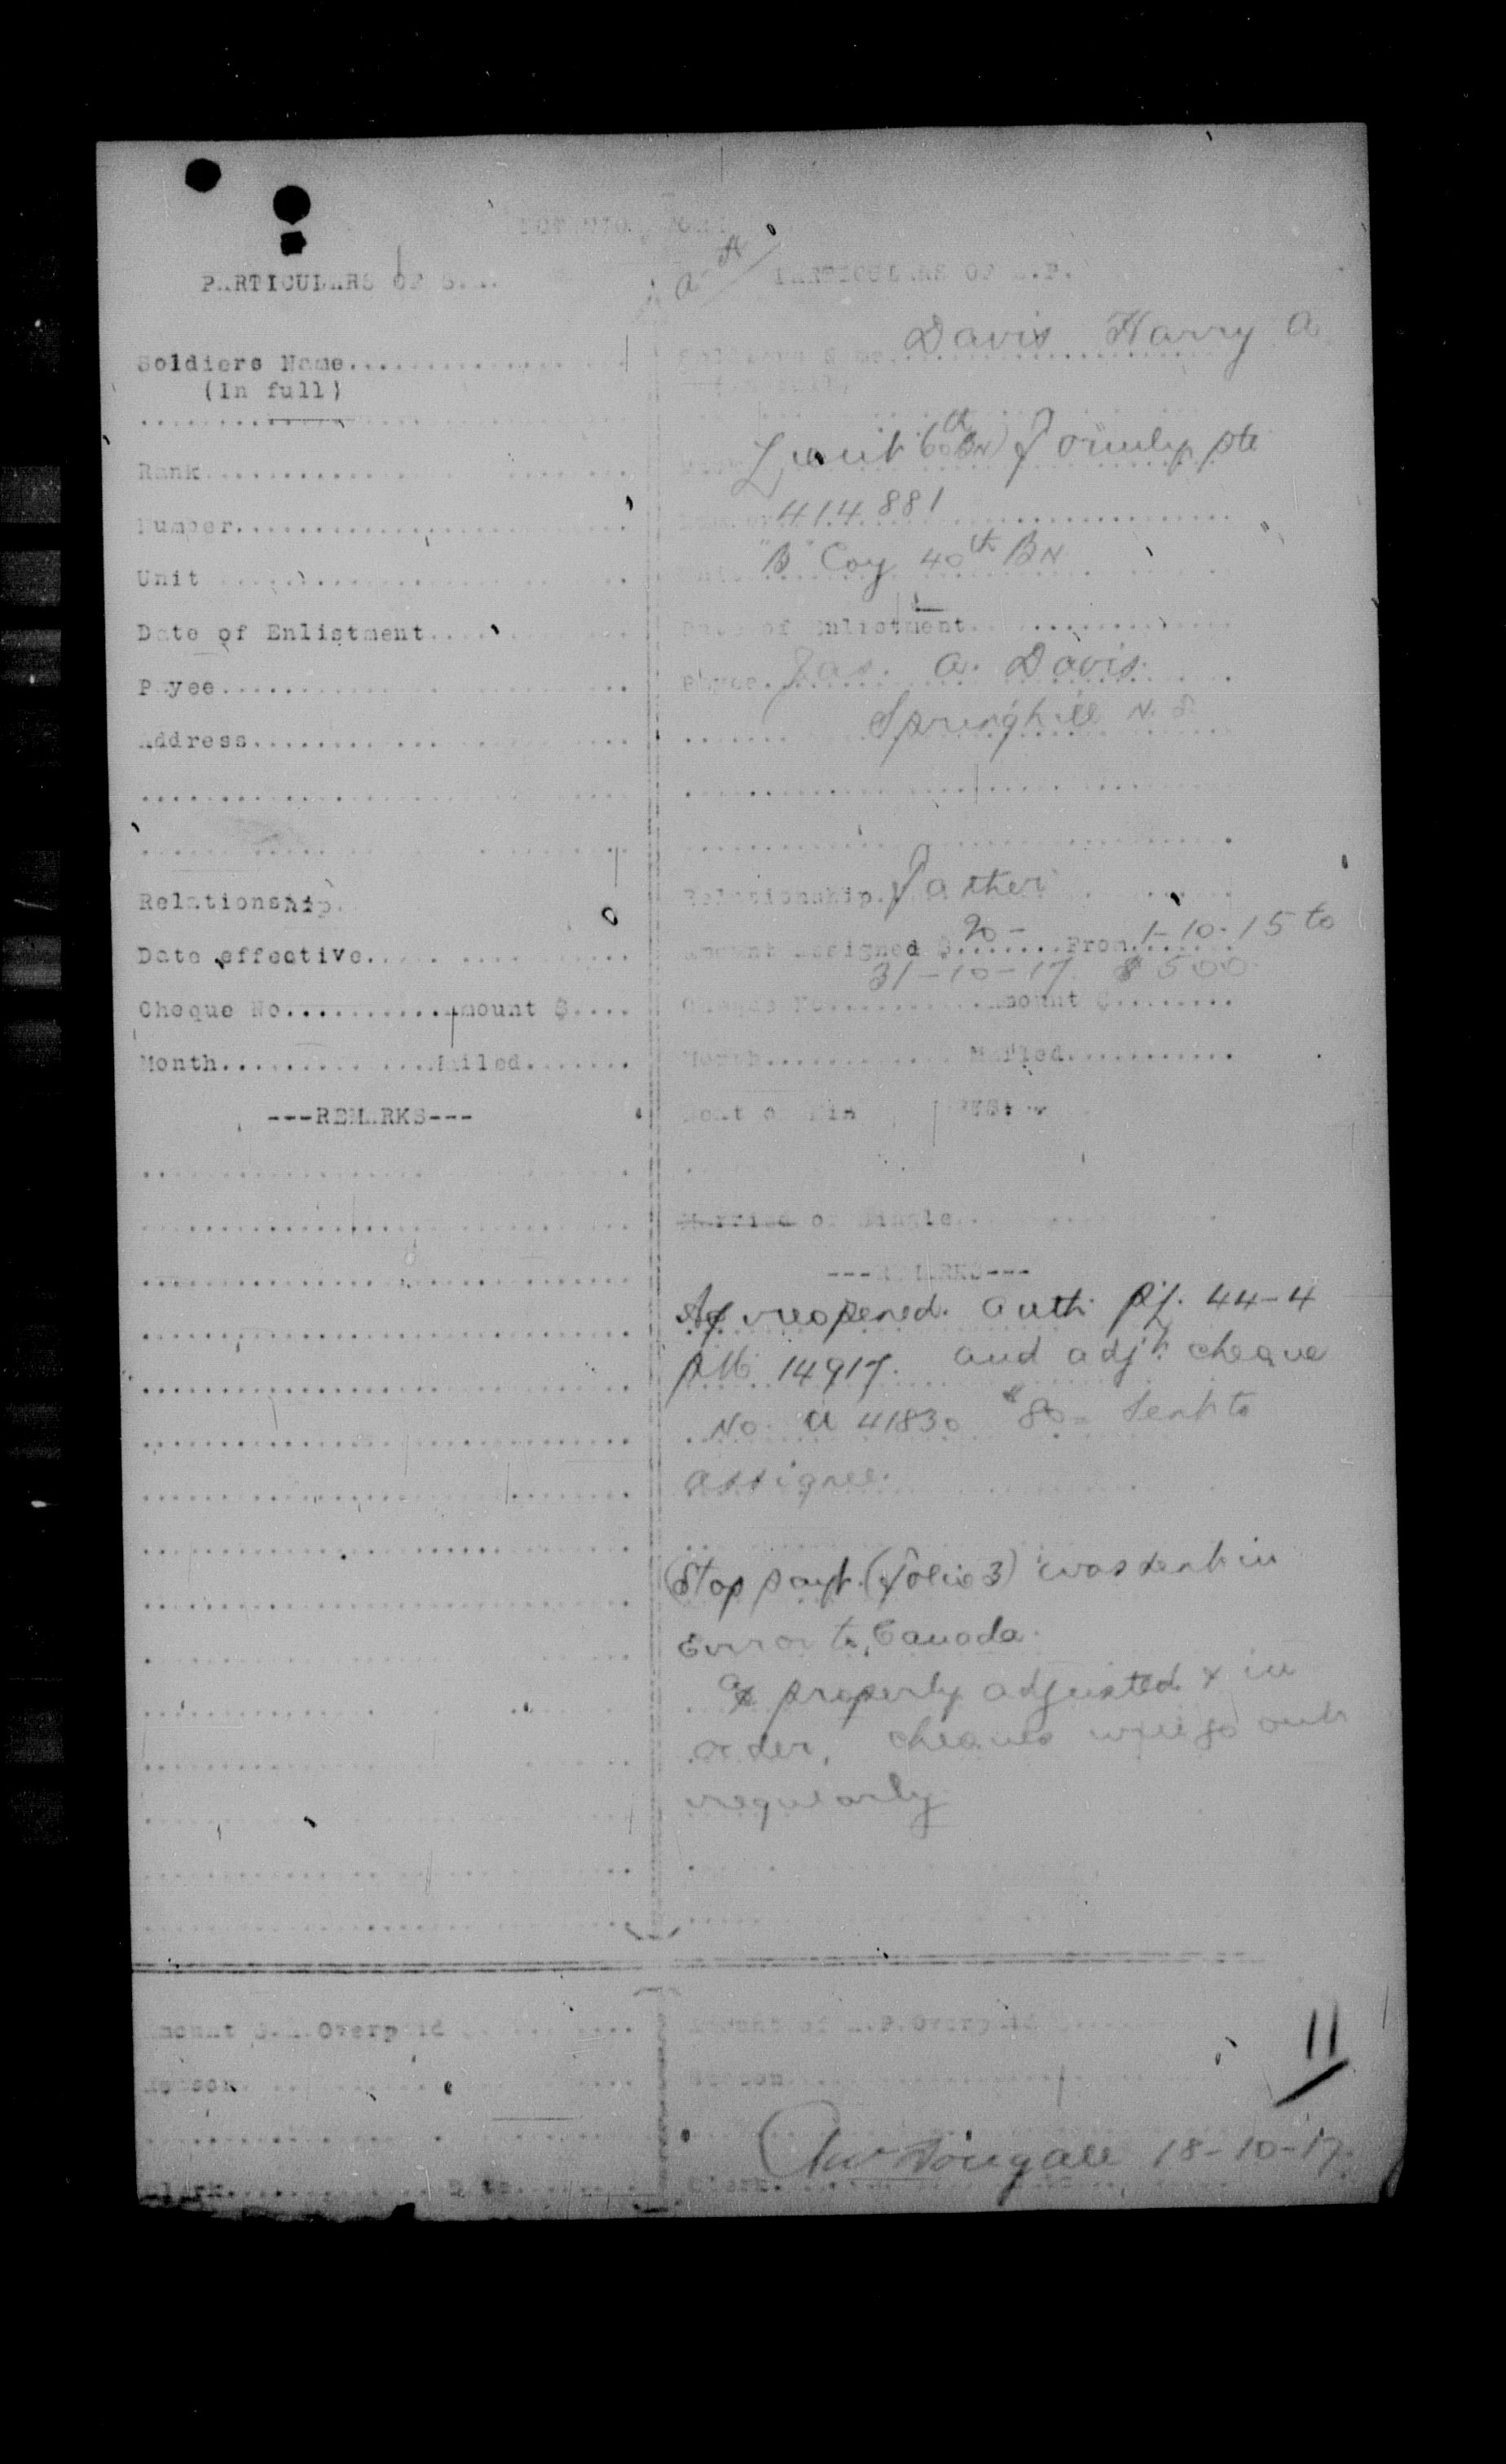 PARTICULARS OF S.A.
Soldiers Name
(In full)
Rank
Number
Unit
Date of Enlistment
Payee
Address
Relationship
Date effective
Cheque No. Amount $
Month Mailed
---REMARKS---
Amount S.A. Overpaid
Reason
Clerk Date
PARTICULARS OF A.P.
Soldiers Name Davis Harry A
(In full)
Lieut 60th Bn Formerly Pte
Number 414881
Unit "B" Coy 40th Bn
Date of Enlistment
Payee Jas. A. Davis
Springhill N.S.
Relationship father
Amount Assigned $ 20- From 1-10-15 to
31-10-17 $500
Cheque No. Amount $
Month Mailed
Next of Kin
Married or Single
---REMARKS---
reopened. Auth. 44-4
14917. and adjt. cheque
No. A 41830 $80= sent to
assignee.
(Stop payt. (folio 3) was sent in
Error to Canada.
a/c properly adjusted & in
order, cheques will go out
regularly
Amount of A.P. Overpaid
Reason
11
Dougall 18-10-17
Clerk